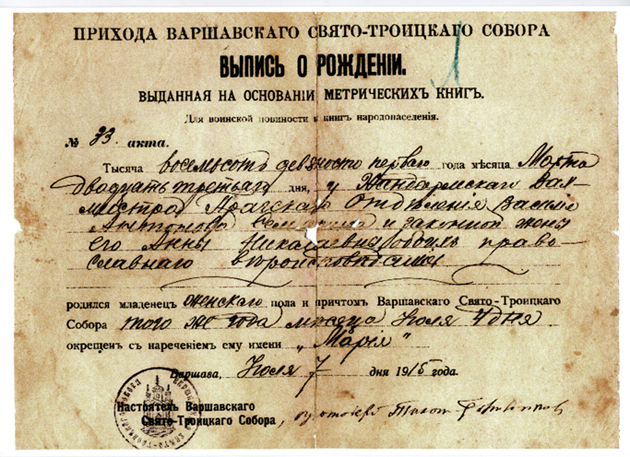 ПРИХОДА ВАРШАВСКАГО СВЯТО-ТРОИЦКАГО СОБОРА
ВЫПИСЬ О РОЖДЕНІИ.
ВЫДАННАЯ НА ОСНОВАНІИ МЕТРИЧЕСКИХЪ КНИГЪ.
Для воинской повинности и книгъ народонаселенія.
№ 33 акта.
Тысяча восемьсотъ девяносто перваго года мѣсяца Марта
двадцать третьяго дня, у Жандармскаго Вах-
мистра Отдѣленія
и законной жены
его Анны Николаевны обоихъ право-
славнаго вѣроисповѣданія
родился младенецъ женскаго пола и причтомъ Варшавскаго Свято-Троицкаго
Собора того же года мѣсяца Іюля 4 дня
окрещенъ съ нареченіемъ ему имени „Марія“
Варшава, Іюля 7 дня 1915 года.
Настоятель Варшавскаго
Свято-Троицкаго Собора,